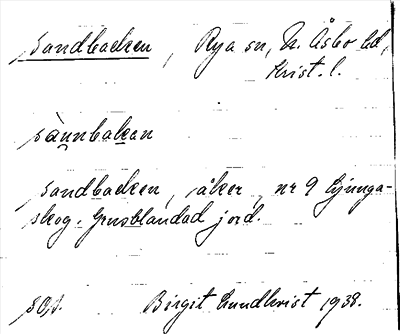 Sandbacken, Rya sn, N. Åsbo hd,
Krist. l.
sànnbakan
Sandbacken, åker, nr 9 Ljunga-
skog. Grusblandad jord.
Birgit Lundkvist 1938.